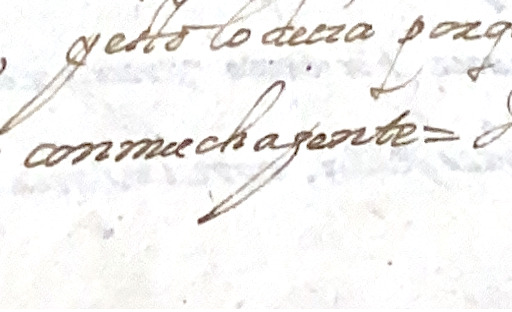 y esto lo decia porq
con mucha gente =